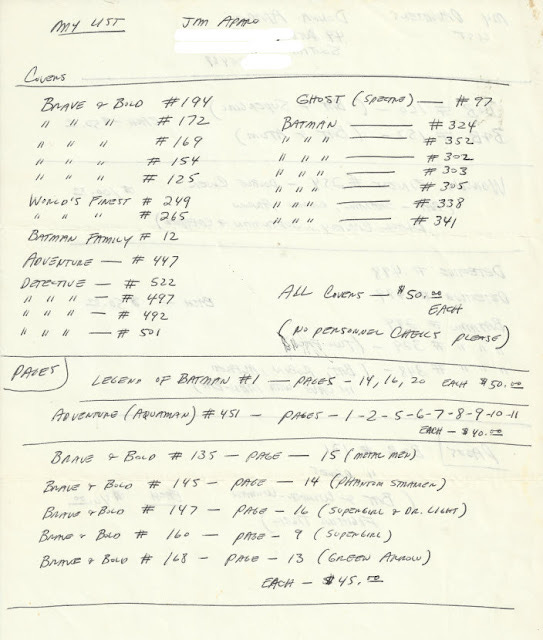 MY LIST JIM APARO
COVERS
BRAVE & BOLD #194
" " " #172
" " " #169
" " " #154
" " " #125
WORLD'S FINEST #249
" " " #265
BATMAN FAMILY #12
ADVENTURE — #447
DETECTIVE — #522
" " " — #497
" " " — #492
" " " — #501
GHOST (SPECTRE) — #97
BATMAN — #324
" " " — #352
" " " — #302
" " " — #303
" " " — #305
" " " — #338
" " " — #341
ALL COVERS — $50.00
EACH
(NO PERSONNEL CHECKS PLEASE)
PAGES
LEGEND OF BATMAN #1 — PAGES - 14, 16, 20 EACH $50.00
ADVENTURE (AQUAMAN) #451 — PAGES - 1-2-5-6-7-8-9-10-11
EACH — $40.00
BRAVE & BOLD #135 — PAGE — 15 (METAL MEN)
BRAVE & BOLD #145 — PAGE — 14 (PHANTOM STRANGER)
BRAVE & BOLD #147 — PAGE — 16 (SUPERGIRL & DR. LIGHT)
BRAVE & BOLD #160 — PAGE - 9 (SUPERGIRL)
BRAVE & BOLD #168 — PAGE - 13 (GREEN ARROW)
EACH — $45.00